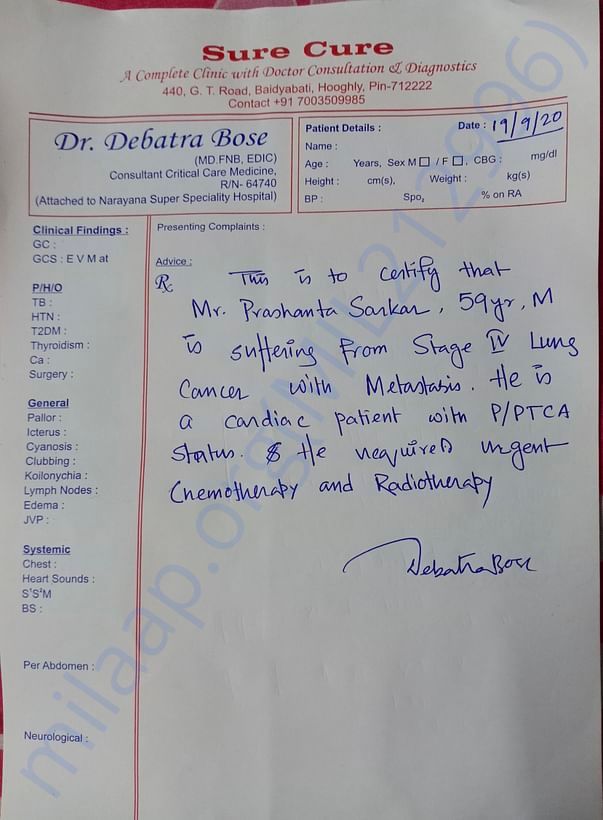 Sure Cure
A Complete Clinic with Doctor Consultation & Diagnostics
440, G. T. Road, Baidyabati, Hooghly, Pin-712222
Contact +91 7003509985
Dr. Debatra Bose
(MD.FNB, EDIC)
Consultant Critical Care Medicine,
R/N- 64740
(Attached to Narayana Super Speciality Hospital)
Patient Details : Date : 19/9/20
Name :
Age : Years, Sex M / F , CBG : mg/dl
Height : cm(s), Weight : kg(s)
BP : Spo₂ % on RA
Clinical Findings :
GC :
GCS : E V M at
P/H/O
TB :
HTN :
T2DM :
Thyroidism :
Ca :
Surgery :
General
Pallor :
Icterus :
Cyanosis :
Clubbing :
Koilonychia :
Lymph Nodes :
Edema :
JVP :
Systemic
Chest :
Heart Sounds :
S¹S²M
BS :
Per Abdomen :
Neurological :
Presenting Complaints :
Advice :
Rx This is to certify that
Mr. Prashanta Sarkar, 59yr, M
is suffering from Stage IV Lung
Cancer with Metastasis. He is
a cardiac patient with P/PTCA
status. He required urgent
Chemotherapy and Radiotherapy
Debatra Bose